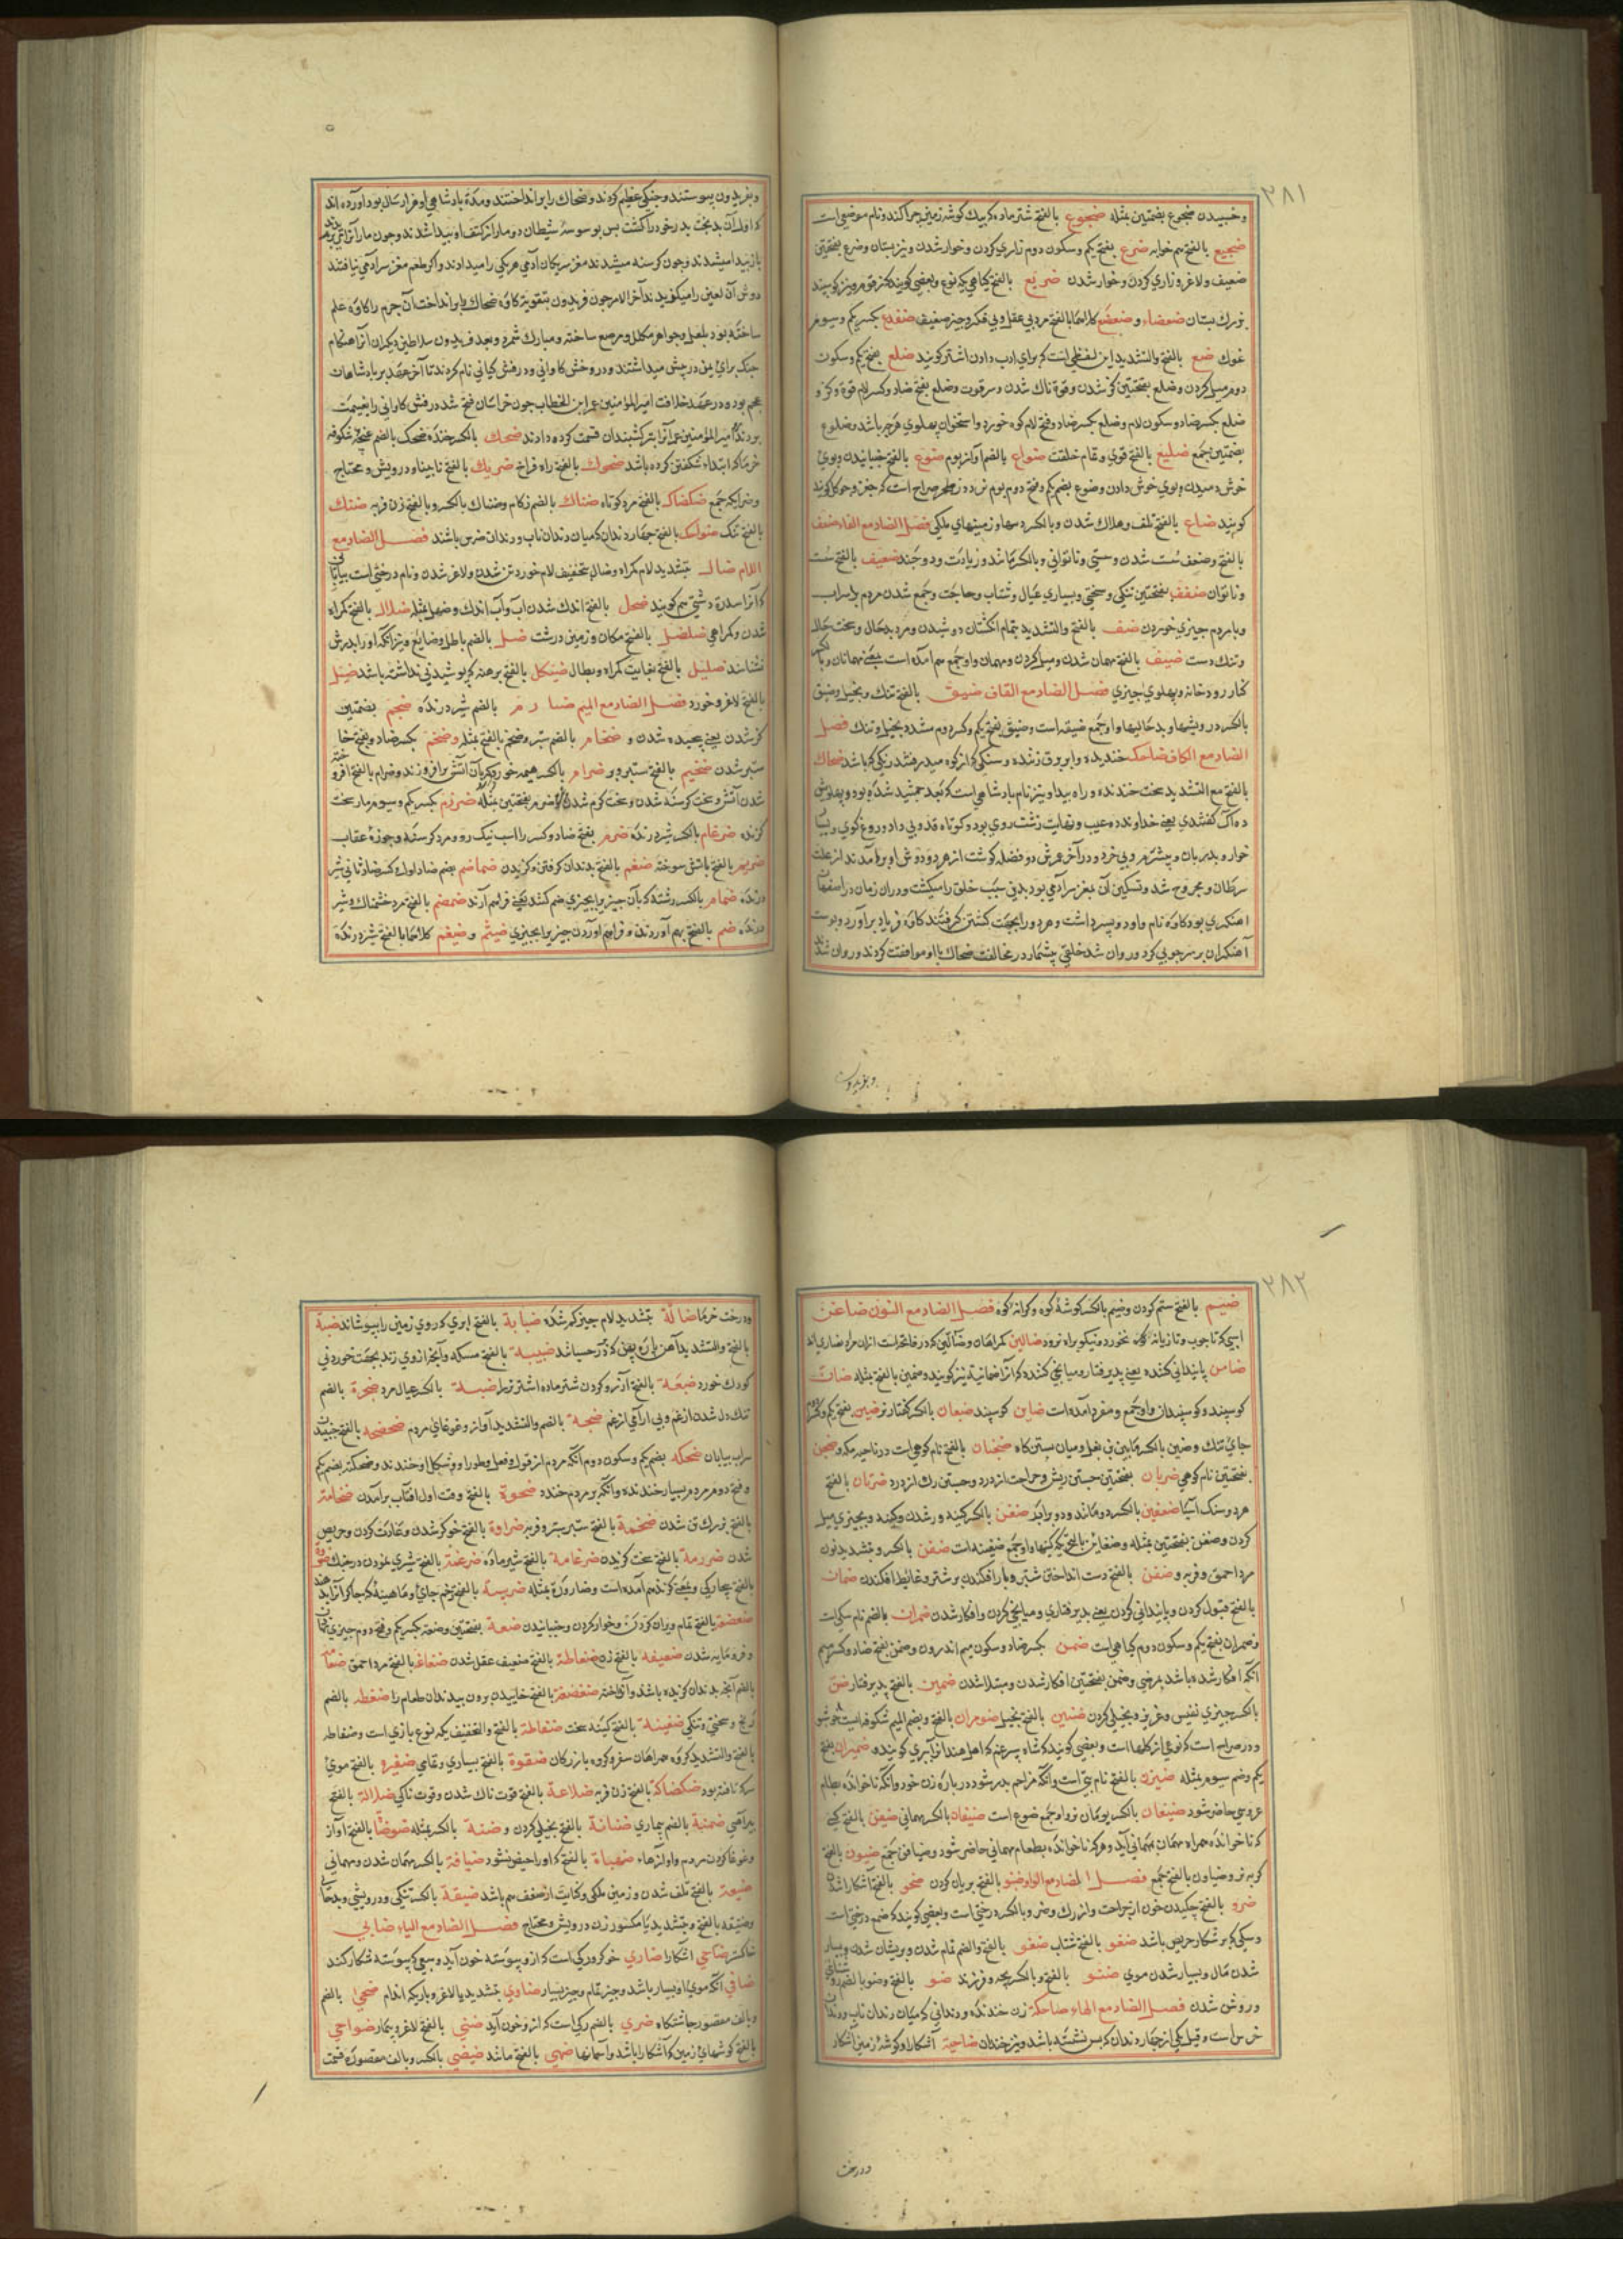 ٢٨١
وخسبیدن ضجوع بضمتین مثله ضجوع بالفتح شتر ماده که بیک کوشه زمین چرا کند ونام موضعی است
ضجیع بالفتح هم خوابه ضرع بفتح یکم وسکون دوم زاري کردن وخوار شدن ونیز پستان وضرع بفتحتین
ضعیف ولاغر وزاري کردن وخوار شدن ضریع بالفتح کیاهي
بزرك پستان ضعضاع وضعضع کلاهما بالفتح مرد بی عقل وبی فکر وچیز ضعیف ضفدع بکسر یکم وسیوم
غوك ضع بالفتح والتشدید این لفظی است که برای ادب دادن اشتر کویند ضلع بفتح یکم وسکون
دوم میل کردن وضلع بفتحتین کژ شدن وقوة ناك شدن
ضلع بکسر ضاد وسکون لام وضلع بکسر ضاد وفتح لام کوه خورد واستخوان پهلوي هرچه باشد وضلوع
بضمتین جمع ضلیع بالفتح قوي وتمام خلقت ضواع بالضم آواز بوم ضوع بالفتح جنبانیدن وبوي
خوش دمیدن وبوي خوش دادن وضوع بضم یکم وفتح دوم بوم نر
کویند ضیاع بالفتح تلف وهلاك شدن وبالکسر دیهها وزمینهاي ملکی فصل الضاد مع الفاء ضعف
بالفتح وضعف سست شدن وسستي وناتوانی وبالکسر مانند وزیادت ودو چند ضعیف بالفتح سست
وناتوان ضفف بفتحتین تنکي وسختي وبسیاري عیال وشتاب وحاجت وجمع شدن مردم
وبا مردم چیزي خوردن ضف بالفتح والتشدید بتمام انکشتان دوشیدن ومرد بدحال
وتنك دست ضیف بالفتح مهمان شدن ومیل کردن ومهمان واو جمع هم آمده است یعني مهمانان وبالکسر
کنار رودخانه وپهلوي چیزي فصل الضاد مع القاف ضیق بالفتح تنك وبخیل وضیق
بالکسر درویشیها وبدحالیها واو جمع ضیقه است وضیق بفتح یکم وکسر دوم مشدد بخیل وتنك فصل
الضاد مع الکاف ضاحك خندیده
بالفتح مع التشدید سخت خندنده وراه پیدا ونیز نام بادشاهي است که بعد جمشید شده بود
ده آك کفتندي یعني خداوند ده عیب ونهایت زشت روي بود وکوتاه قد وبی داد ودروغ کوي
خوار وبدزبان
سرطان ومجروح شد وتسکین آن بمغز سر آدمي بود بدین سبب خلق را میکشت ودران زمان در اصفهان
اهنکري بود کاوه نام واو دو پسر داشت وهر دو را بجهت کشتن کرفتند کاوه فریاد برآورد وپوست
آهنکران بر سر چوبي کرد وروان شد خلقي بیشمار در مخالفت ضحاك با او موافقت کردند وروان شدند
وبفریدون
وبفریدون پیوستند وجنکي عظیم کردند وضحاك را برانداختند ومدة بادشاهي او هزار سال بود آورده اند
که اول آن بدبخت پدر خود را کشت پس بوسوسه شیطان دو مار از کتف او پیدا شدند وچون مار آنرا
باز پیدا میشدند وچون کرسنه میشدند مغز سر یکان آدمي هر یکي را میدادند واکر طعم مغز سر آدمي نیافتند
دوش آن لعین را میکزیدند آخر الامر چون فریدون بتقویة کاوه ضحاك را برانداخت آن چرم را کاوه علم
ساخته بود بلعل وجواهر مکلل ومرصع ساخته ومبارك شمرد وبعد فریدون سلاطین دیکران آنرا هنکام
جنك
عجم بود ودر عهد خلافت امیر المؤمنین عمر ابن الخطاب چون خراسان فتح شد درفش کاوانی را بغنیمت
بردند امیر المؤمنین عمر آنرا بر کشبندان قسمت کرده دادند ضحك بالکسر خنده ضحك بالضم غنچه شکوفه
خرما که ابتداء شکفتن کرده باشد ضحوك بالفتح راه فراخ ضریك بالفتح نابینا ودرویش ومحتاج
وضرایکه جمع ضکضاك بالفتح مرد کوتاه ضناك بالضم زکام وضناك بالکسر وبالفتح زن فربه ضنك
بالفتح تنك ضواحك بالفتح چهار دندان که میان دندان ناب ودندان ضرس باشند فصل الضاد مع
اللام ضال بتشدید لام کمراه وضال بتخفیف لام خورد تن شدن ولاغر شدن ونام درختي است بیابانی
که آنرا سدره دشتي هم کویند ضحل بالفتح اندك شدن آب وآب اندك وضهل مثله ضلال بالفتح کمراه
شدن وکمراهي ضلضل بالفتح مکان وزمین درشت ضل بالضم باطل وضایع ونیز آنکه او را پدرش
نشناسند ضلیل بالفتح بغایت کمراه وبطال ضیکل بالفتح برهنه که پوشیدني نداشته باشد ضئیل
بالفتح لاغر وخورد فصل الضاد مع المیم ضبارم بالضم شیر درنده ضجم بضمتین
کژ شدن یعني پیچیده شدن وضخام بالضم ستبر وضخم بالفتح مثله وضخم بکسر ضاد وبفتح خا
ستبر شدن ضخیم بالفتح ستبر وپر ضرام بالکسر هیمه خورد که بآن آتش برافروزند وضرام بالفتح افروخته
شدن آتش وسخت کرسنه شدن وسخت کرم شدن وضرم بفتحتین مثله ضرزم بکسر یکم وسیوم مار سخت
کزنده ضرغام بالکسر شیر درنده ضرم بفتح ضاد وکسر را اسب نیك رو ومرد کرسنه وجوزه عقاب
ضریم بالفتح باتش سوخته ضغم بالفتح بدندان کرفتن وکزیدن ضماضم بضم ضاد اول وکسر ضاد ثانی شیر
درنده ضمام بالکسر رشته که بآن چیزیرا بچیزي ضم کنند یعني فراهم آرند ضمضم بالفتح مرد خشمناك وشیر
درنده ضم بالفتح بهم آوردن وفراهم آوردن چیزیرا بچیزي ضیثم وضیغم کلاهما بالفتح شیر درنده
٢٨٢
ضیم بالفتح ستم کردن وضیم بالکسر کوشه کوه وکرانه کوه فصل الضاد مع النون ضاغن
اسپي که تا چوب وتازیانه نخورد نیکو براه نرود ضالین کمراهان وضالین که در فاتحه است ازان مراد نصاري اند
ضامن پایندانی کننده یعني پذیرفتار ومیانجي کننده که آنرا ضمانیة نیز کویند وضمین بالفتح مثله ضان
کوسپند وکوسپندان واو جمع ومفرد آمده است ضاین کوسپند ضبعان بالکسر کفتار نر ضبن بفتح یکم
جاي تنك وضبن بالکسر مابین بن بغل ومیان بستن کاه ضجنان بالفتح نام کوهي است در ناحیه مکه وضجن
بفتحتین نام کوهي ضربان بفتحتین جستن ریش وجراحت از درد وجستن رك از درد ضرتان بالفتح
هر دو سنك آسیا ضعفین بالکسر دو مانند ودو برابر ضغن بالکسر کینه ور شدن وکینه وبچیزي میل
کردن وضغن بفتحتین مثله وضغاین بالفتح کینها واو جمع ضغینه است ضفن بالکسر وتشدید نون
مرد احمق وفربه وضفن بالفتح دست انداختن شتر وبار افکندن بر شتر وغایط افکندن ضمان
بالفتح قبول کردن وپایندانی کردن یعني پذیرفتاري ومیانجي کردن وافکار شدن ضمران بالضم نام سکي است
وضمران بفتح یکم وسکون دوم کیاهي است ضمن بکسر ضاد وسکون میم اندرون وضمن بفتح ضاد وکسر میم
آنکه افکار شده باشد بمرضي وضمن بفتحتین افکار شدن ومبتلا شدن ضمین بالفتح پذیرفتار ضن
بالکسر چیزي نفیس وعزیز وبخیلي کردن ضنین بالفتح بخیل ضومران بالفتح وبضم المیم شکوفه ایست خوشبو
ودر صراح است که نوعي از کلها است وبعضي کویند که شاه سپرغم که اهل هند آنرا
یکم وضم سیوم مثله ضیزن بالفتح نام بتي است وآنکه مزاحم پدر شود در باره زن خود وآنکه ناخوانده بطعام
عروسي حاضر شود ضیعان
که ناخوانده همراه مهمان بمهمانی آید وهرکه ناخوانده بطعام مهمانی حاضر شود وضیافن جمع ضیون بالفتح
کربه نر وضیاون بالفتح جمع فصل الضاد مع الواو ضبو بالفتح بریان کردن ضحو بالفتح آشکارا شدن
ضرو بالفتح چکیدن خون از جراحت واز رك وضرو بالکسر درختي است وبعضي کویند که صمغ درختي است
وسکي که بر شکار حریص باشد ضغو بالفتح شتاب ضفو بالفتح والضم تمام شدن وپریشان شدن وبسیار
شدن مال وبسیار شدن موي ضنو بالفتح وبالکسر بچه وفرزند ضو بالفتح وضو بالضم روشنائي
وروشن شدن فصل الضاد مع الهاء ضاحکة زن خندنده ودندانی که میان دندان ناب ودندان
ضرس است وقیل یکي از چهار دندان که پس نشسته باشد ونیز خندان ضاحیة آشکارا وکوشه زمین آشکار
ودرخت
ودرخت خرما ضالة بتشدید لام چیز کم شده ضبابة بالفتح ابري که روي زمین را بپوشاند ضبة
بالفتح والتشدید آهن پاره پهن که بر در چسپانند ضبیبة بالفتح مسکه
کودك خورد ضبعة بالفتح آرزو کردن شتر ماده اشتر نر را ضبنة بالکسر عیال مرد ضجرة بالضم
تنك دل شدن از غم وبی آرامی از غم ضجة بالضم والتشدید آواز وغوغاي مردم ضحضحة بالفتح جنبیدن
سراب بیابان ضحکة بضم یکم وسکون دوم آنکه مردم از قول وفعل وطور او وشکل او خندند وضحکة بضم یکم
وفتح دوم مرد بسیار خندنده وآنکه بر مردم خندد ضحوة بالفتح وقت اول آفتاب برآمدن ضخامة
بالفتح بزرك تن شدن ضخمة بالفتح ستبر وپر وفربه ضراوة بالفتح خوکر شدن وعادت کردن وحریص
شدن ضرزمة بالفتح سخت کزیدن ضرغامة بالفتح شیر ماده ضرغمة بالفتح شیري نمودن در جنك ضرورة
بالفتح بیچارکي وبمعني کزند هم آمده است وضارورة مثله ضریبة بالفتح
ضعضعة بالفتح تمام ویران کردن وخوار کردن وجنبانیدن ضعة بفتحتین وضعة بکسر یکم وفتح دوم چیزي
وفرومایه شدن ضعیفة بالفتح زن ضغاطة بالفتح ضعیف عقل شدن ضغاغ بالفتح مرد احمق
بالضم آنچه بدندان کزیده باشند وانداخته ضغضغة بالفتح خاییدن مرد بی دندان طعام را ضغطة بالضم
رنج وسختي وتنکي ضغینة بالفتح کینه سخت ضفاطة بالفتح والتخفیف یکم نوع بازي است وضفاطه
بالفتح والتشدید کروه همراهان سفر وکروه بازرکان ضفوة بالفتح بسیاري وتمامي ضفیرة بالفتح موي
سر که بافته بود ضکضاکة بالفتح زن فربه ضلاعة بالفتح قوت ناك شدن وقوت ناکي ضلالة بالفتح
بیراهي ضمنة بالضم بیماري ضنانة بالفتح بخیلي کردن وضنة بالکسر مثله ضوضاة بالفتح آواز
وغوغا کردن مردم وآوازها ضهیاة بالفتح زن که او را حیض نشود ضیافة بالکسر مهمان شدن ومهمانی
ضیعة بالفتح تلف شدن وزمین ملکي وکنایت از ضعف هم باشد ضیقة بالکسر تنکي ودرویشي وبدحالي
وضیقه بالفتح وبتشدید یا مکسور زن درویش ومحتاج فصل الضاد مع الیاء ضابي
خاکستر ضاحي آشکارا ضاري خوکر ورکي است که ازو پیوسته خون آید وسبعي که پیوسته شکار کند
ضافي آنکه موي او بسیار باشد وچیز تمام وچیز بسیار ضاوي بتشدید یا لاغر وباریك اندام ضحی بالضم
وبالف مقصور چاشتکاه ضري بالضم رکي است که ازو خون آید ضنی بالفتح لاغر وبیمار ضواحي
بالفتح کوشهاي زمین که آشکارا باشد وآسمانها ضهی بالفتح مانند ضیزی بالکسر وبالف مقصوره قسمت